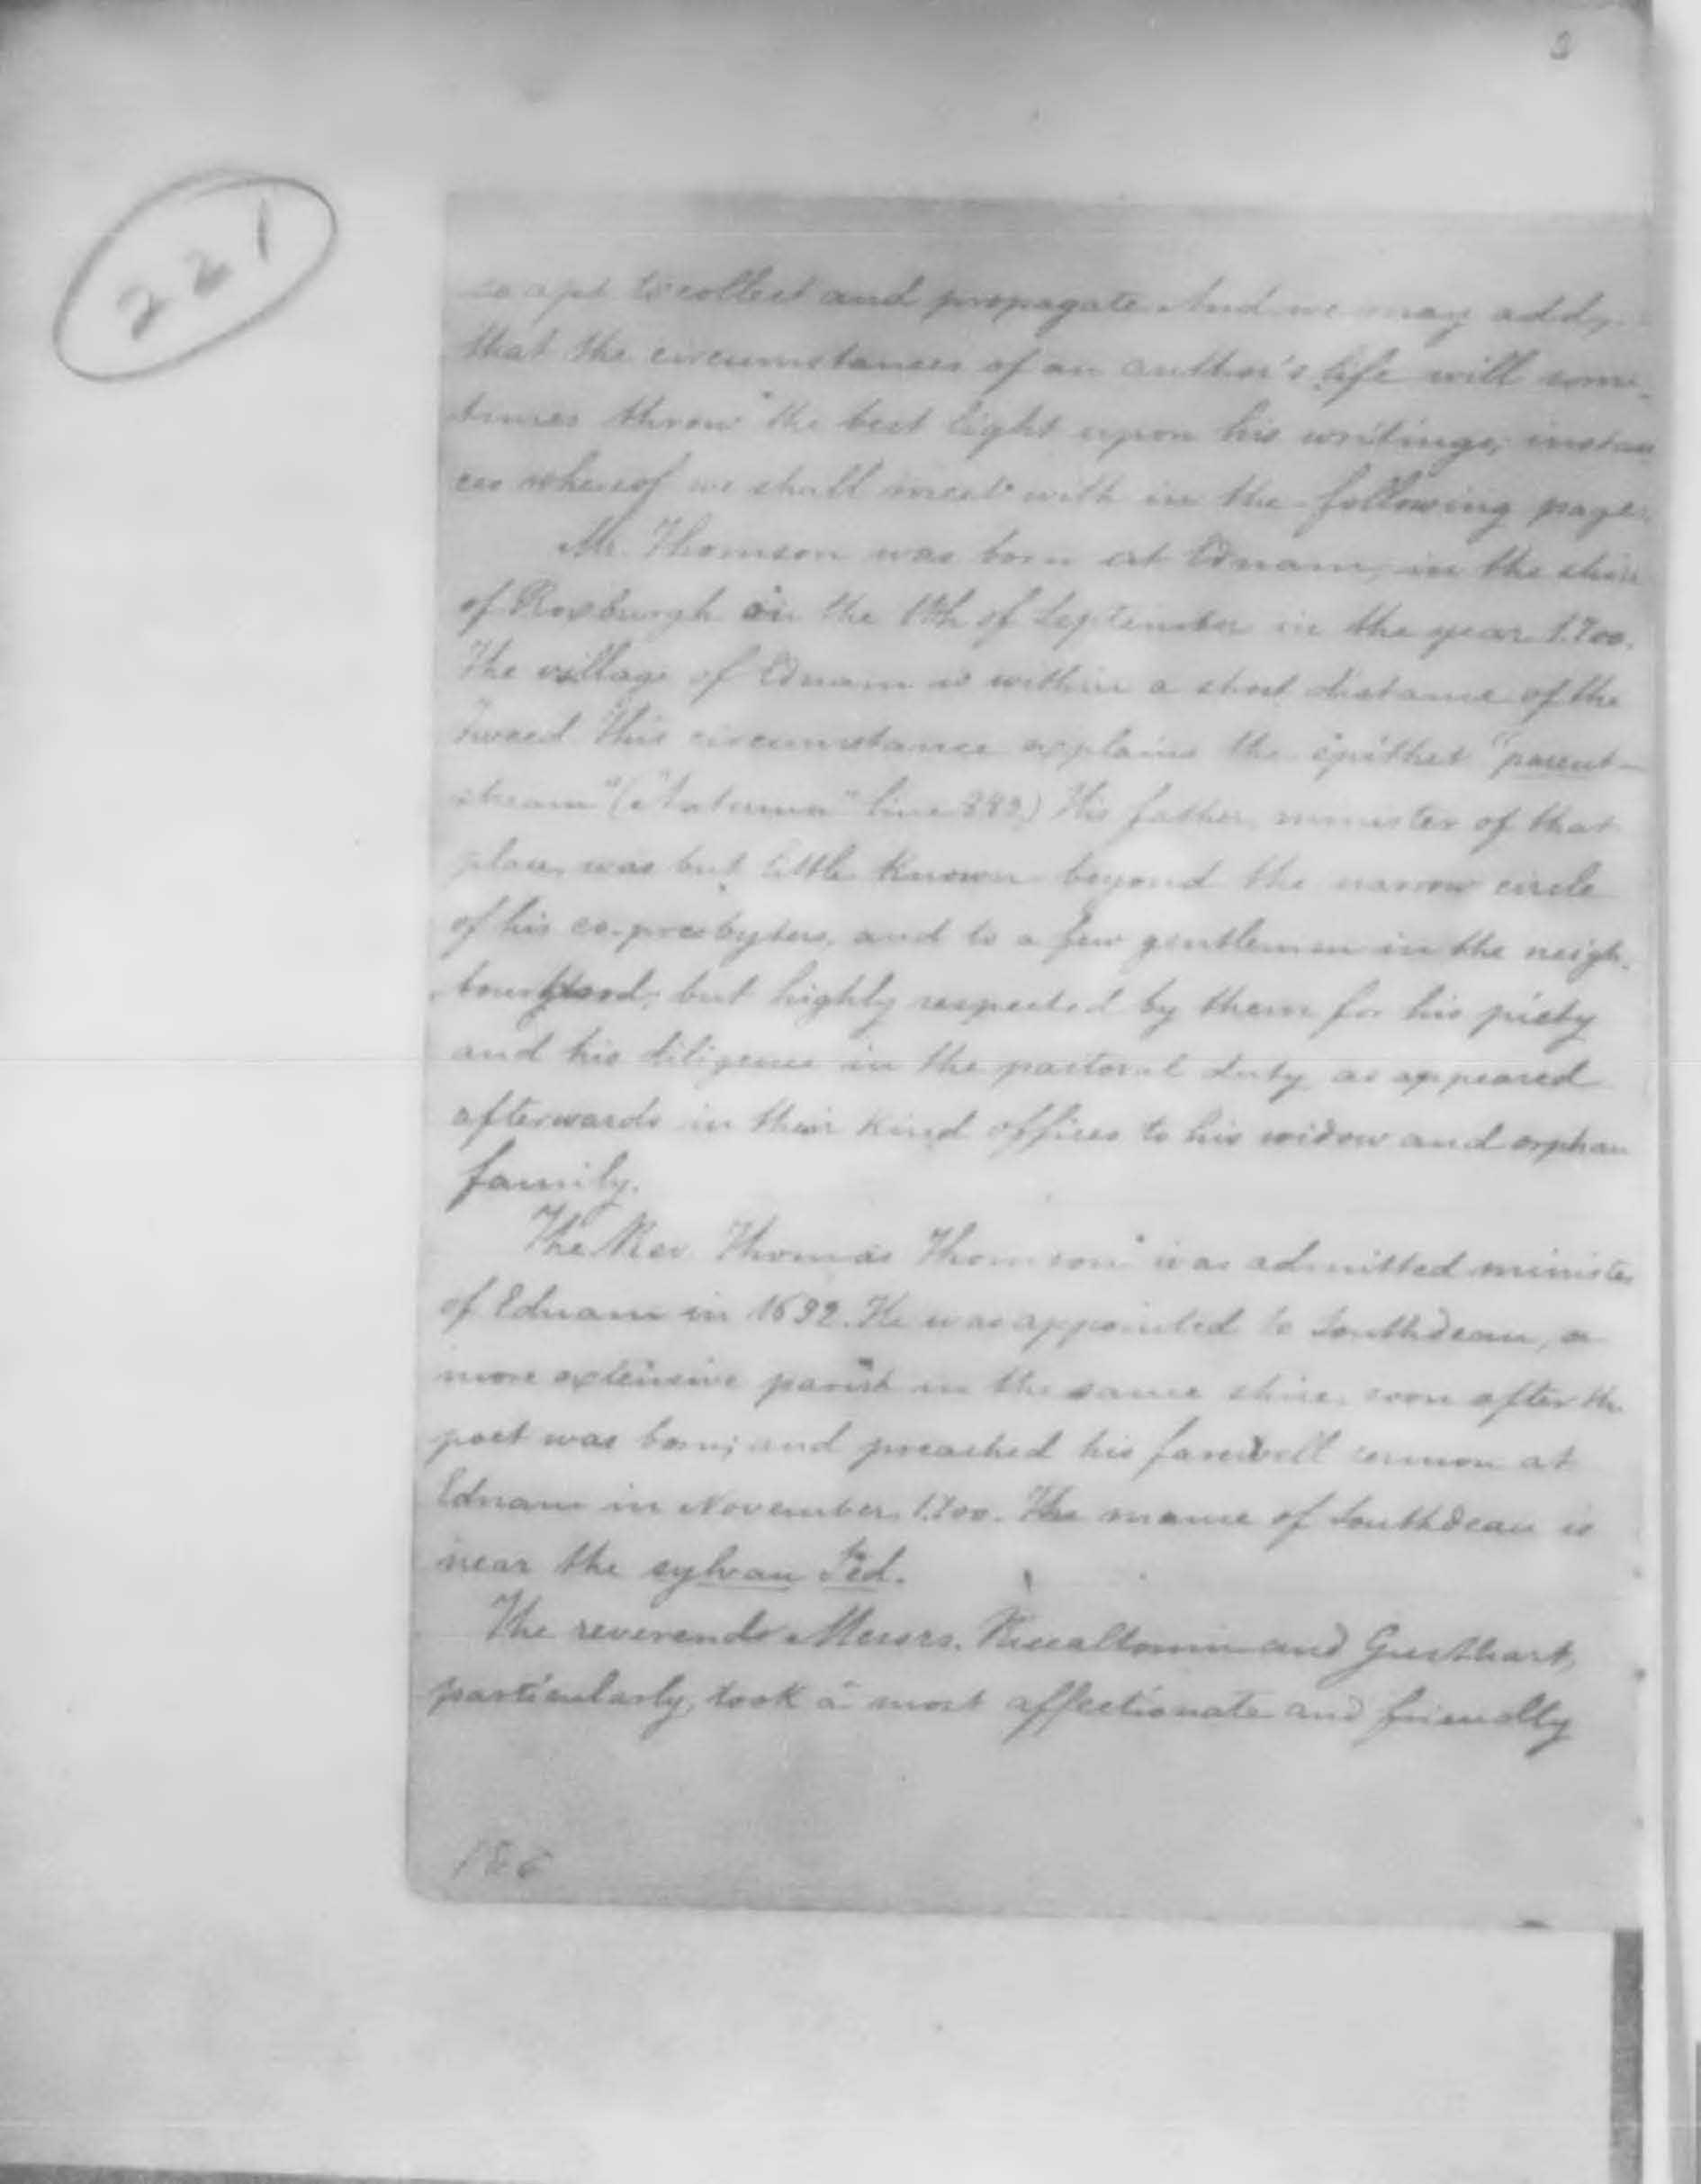 2
221
so apt to collect and propagate. And we may add,
that the circumstances of an author's life will some-
times throw the best light upon his writings; instan
ces whereof we shall meet with in the following pages.
Mr. Thomson was born at Ednam, in the shire
of Roxburgh on the 11th of September in the year 1700.
The village of Ednam is within a short distance of the
Tweed. This circumstance explains the epithet "parent-
stream" ("Autumn" line 889.) His father, minister of that
place, was but little known beyond the narrow circle
of his co-presbyters, and to a few gentlemen in the neigh-
bourhood; but highly respected by them for his piety
and his diligence in the pastoral duty, as appeared
afterwards in their kind offices to his widow and orphan
family.
The Rev. Thomas Thomson was admitted minister
of Ednam in 1692. He was appointed to Southdean, a
more extensive parish in the same shire, soon after the
poet was born; and preached his farewell sermon at
Ednam in November, 1700. The manse of Southdean is
near the sylvan Jed.
The reverends Messrs. and
particularly, took a most affectionate and friendly
186